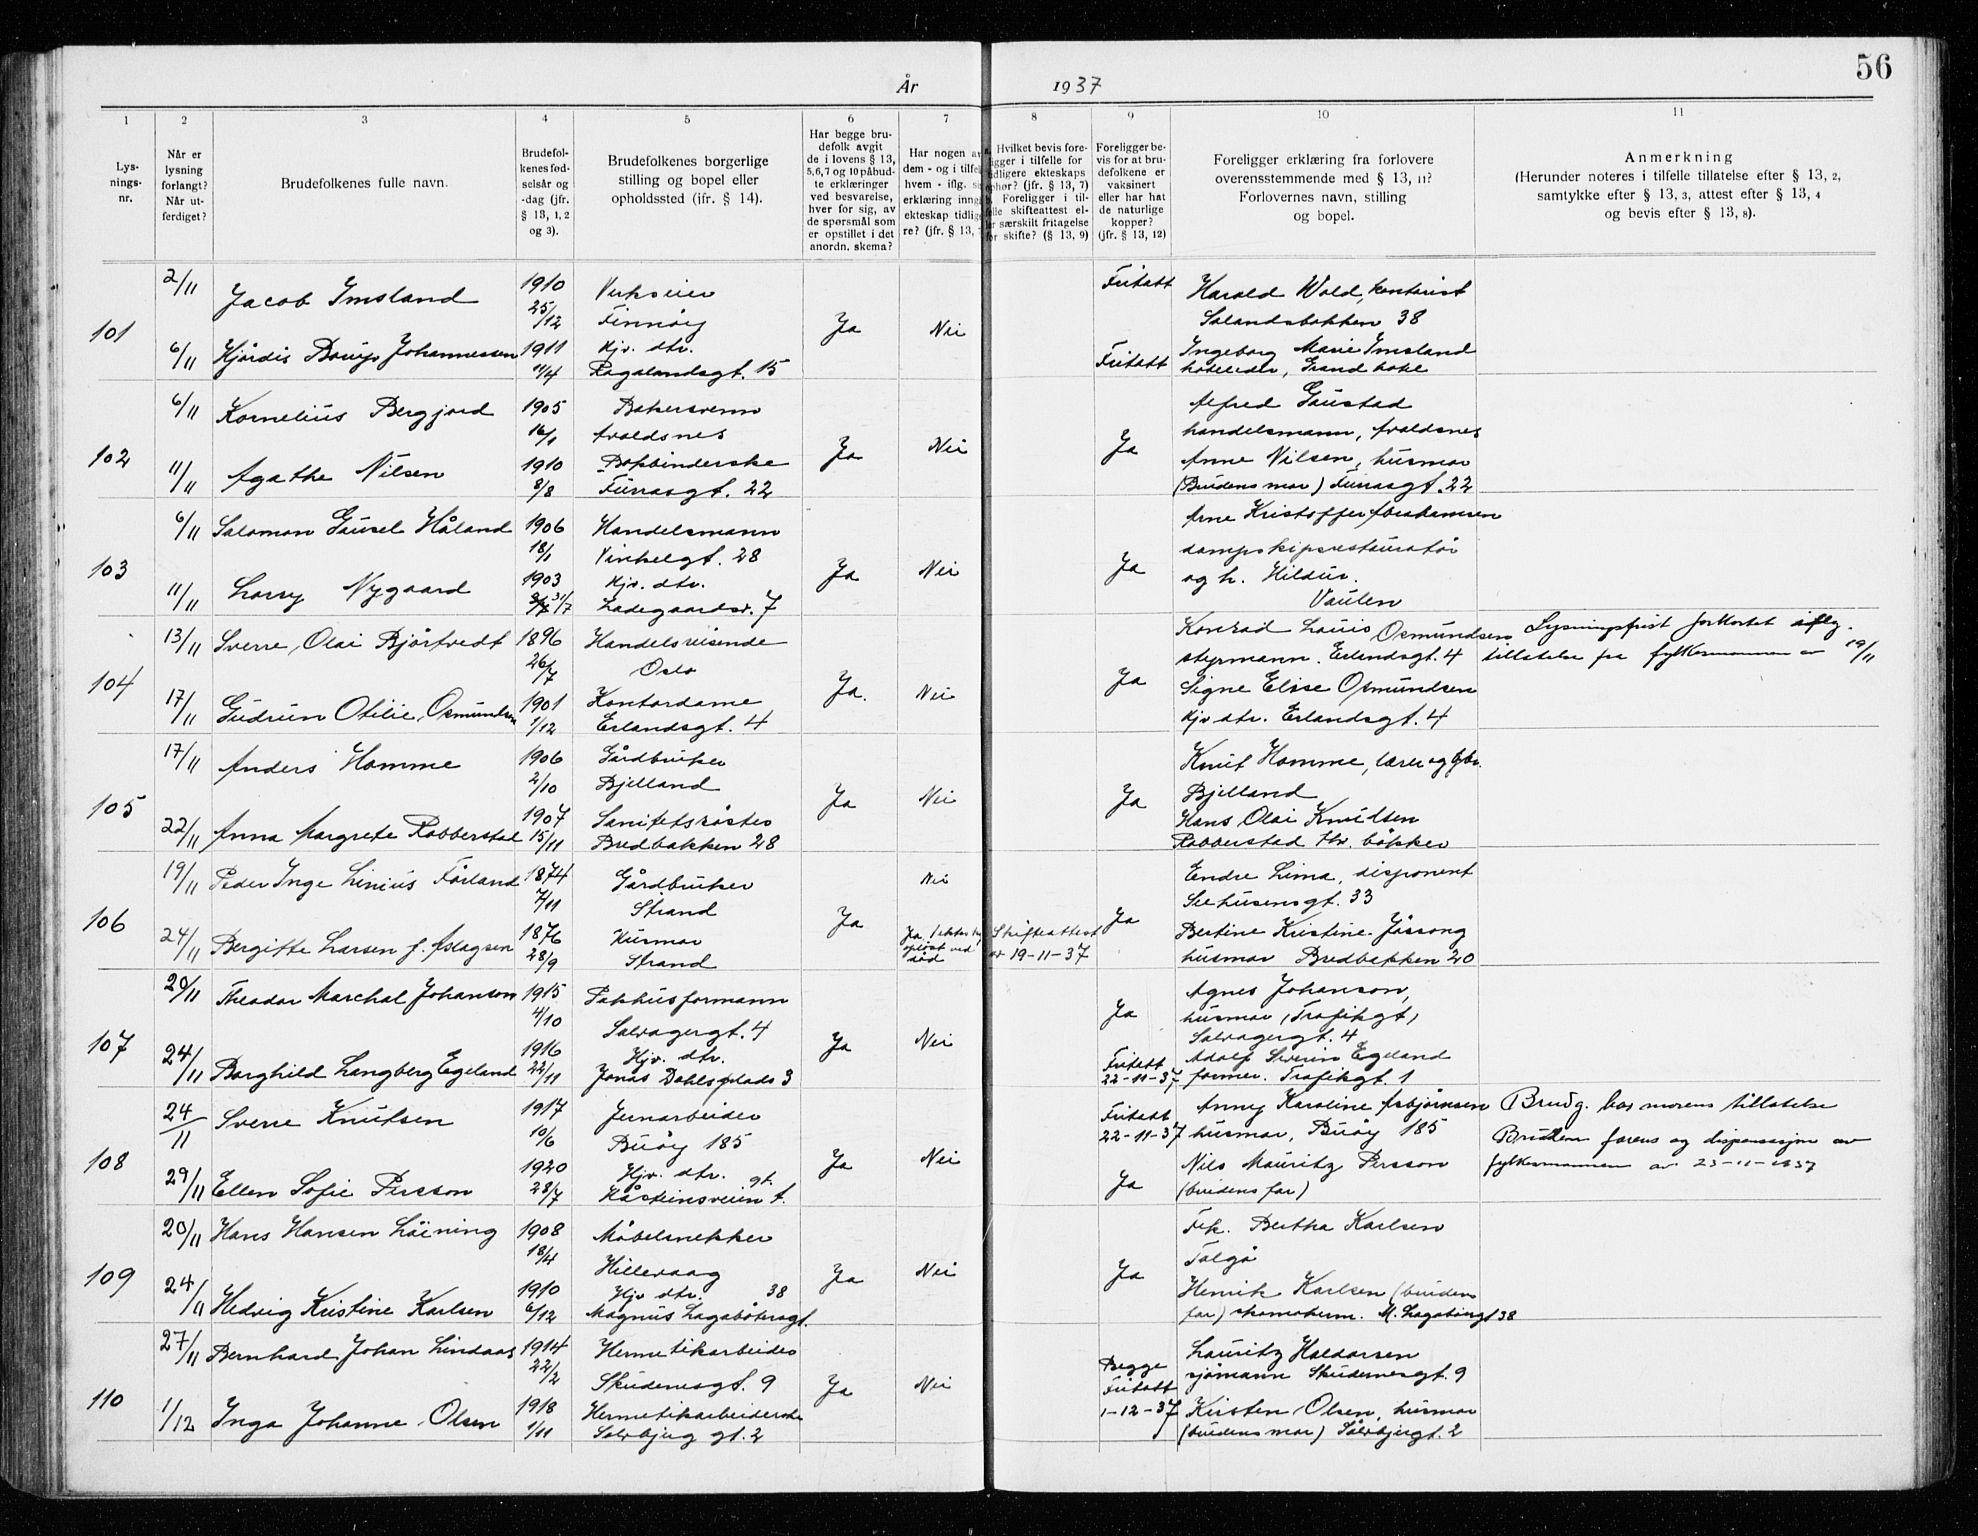 56
År 1937
1 2 3 4 5 6 7 8 9 10 11
Lys-
nings-
nr.
Når er
lysning
forlangt?
Når ut-
ferdiget?
Brudefolkenes fulle navn.
Brudefol-
kenes fød-
selsår og
-dag (jfr.
§ 13, 1, 2
og 3).
Brudefolkenes borgerlige
stilling og bopel eller
opholdssted (jfr. § 14).
Har begge bru-
defolk avgit
de i lovens § 13,
5,6,7 og 10 påbud-
te erklæringer
ved besvarelse,
hver for sig, av
de spørsmål som
er opstillet i det
anordn. skema?
Har nogen av
dem - og i tilfel
hvem - iflg. s
erklæring inng
ekteskap tidlig
re? (jfr. § 13,
Hvilket bevis fore-
ligger i tilfelle for
tidligere ekteskaps
ophør? (jfr. § 13, 7)
Foreligger i til-
felle skifteattest el-
ler særskilt fritagelse
for skifte? (§ 13, 9)
Foreligger be-
vis for at bru-
defolkene er
vaksinert
eller har hat
de naturlige
kopper?
(jfr. § 13, 12)
Foreligger erklæring fra forlovere
overensstemmende med § 13, 11?
Forlovernes navn, stilling
og bopel.
Anmerkning
(Herunder noteres i tilfelle tillatelse efter § 13, 2,
samtykke efter § 13, 3, attest efter § 13, 4
og bevis efter § 13, 8).
101
2/11 Jacob Imsland 1910 Verkseier Fritatt Harald Wold, kontorist
25/12 Finnøy Ja Nei Solandsbakken 38
6/11 Hjørdis Johannessen 1911 Hjv. dtr. Fritatt Ingeborg Marie Imsland
11/4 Rogalandsgt. 15 hotelleier, Grand hotel
102
6/11 Kornelius Bergjord 1905 Bakersvenn Alfred Gaustad
16/1 Avaldsnes Ja Nei Ja handelsmann, Avaldsnes
11/11 Agathe Nilsen 1910 Bokbinderske Anne Nilsen, husmor
8/8 Furrasgt. 22 (Brudens mor) Furrasgt. 22
103
6/11 Salomon Gausel Håland 1906 Handelsmann Arne Kristoffer Abrahamsen
18/1 Vinkelgt. 28 Ja Nei Ja dampskipsrestauratør
11/11 Larry Nygaard 1903 Hjv. dtr. og h. Hildur.
31/7 Ladegaardsv. 7 Vaulen
104
13/11 Sverre Olai Bjørtvedt 1896 Handelsreisende Konrad Louis Osmundsen Lysningsfrist forkortet iflg.
26/7 Oslo Ja. Nei Ja styrmann. Erlandsgt. 4 tillatelse fra fylkesmannen av 19/11
17/11 Gudrun Otilie Osmundsen 1901 Kontordame Signe Elise Osmundsen
1/12 Erlandsgt. 4 Hjv dtr. Erlandsgt. 4
105
17/11 Anders Homme 1906 Gårdbruker Knut Homme, lærer og gbr.
2/10 Bjelland Ja Nei Ja Bjelland
22/11 Anna Margrete Robberstad 1907 Sanitetssøster Hans Olai Knutsen
15/11 Bredbakken 28 Robberstad Hv. bøkker
106
19/11 Peder Inge Linius Førland 1874 Gårdbruker Nei Endre Lima, disponent
7/11 Strand Ja Ja Seehusensgt. 33
24/11 Bergitte Larsen f. Aslagsen 1876 Husmor Ja, 1 Skifteattest Bertine Kristine Jåssong
28/9 Strand opløst ved død av 19-11-37 husmor Bredbakken 20
107
20/11 Theodor Marchal Johanson 1915 Pakkhusformann Agnes Johanson,
4/10 Solvagergt. 4 Ja Nei Ja husmor, (Trafikgt)
Solvagergt. 4
24/11 Borghild Langberg Egeland 1916 Hjv. dtr. Fritatt Adolf Severin Egeland
22/11 Jonas Dahls plads 3 22-11-37 former. Trafikgt. 1
108
24/11 Sverre Knutsen 1917 Jernarbeider Fritatt Anny Karoline Asbjørnsen Brudg. har morens tillatelse
10/6 Buøy 185 Ja Nei 22-11-37 husmor, Buøy 185 Bruden farens og dispensasjon av
29/11 Ellen Sofie Persson 1920 Hjv. dtr. Nils Mauritz Persson fylkesmannen av 23-11-1937
28/7 Ja (brudens far)
109
20/11 Hans Hansen Løining 1908 Møbelsnekker Frk. Bertha Karlsen
18/4 Hillevaag Ja Nei Ja Talgø
24/11 Hedvig Kristine Karlsen 1910 Hjv dtr. 38 Henrik Karlsen (brudens
6/12 Magnus Lagabøtersgt. far) skomakerm. M. Lagabtrgt 38
110
27/11 Bernhard Johan Lindaas 1914 Hermetikarbeider Begge Lauritz Haldorsen
22/2 Skudenesgt. 9 Ja Nei Fritatt sjømann Skudenesgt. 9
1/12 Inga Johanne Olsen 1918 Hermetikarbeiderske 1-12-37 Kirsten Olsen, husmor
1/11 Solvbjerg gt. 2 (brudens mor) Sølvbjergt. 2